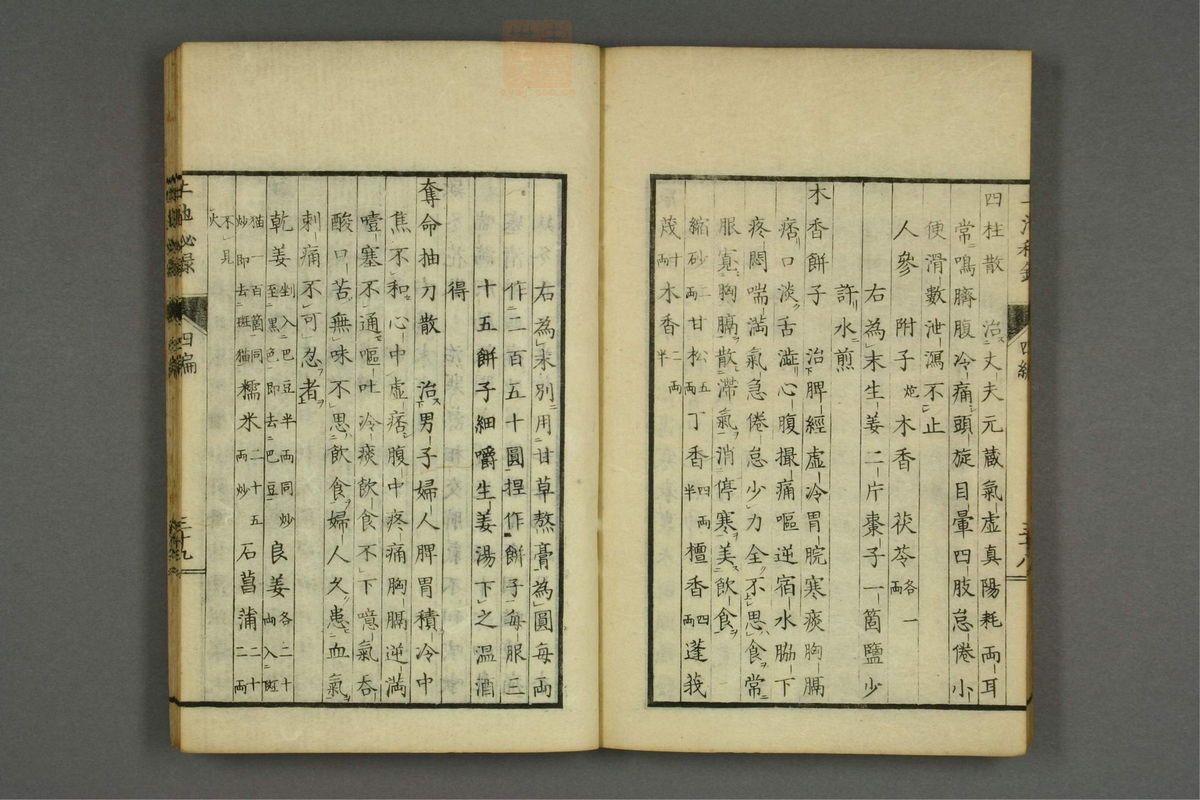 四柱散　治丈夫元蔵氣虚真陽耗両耳
常鳴臍腹冷痛頭旋目暈四肢怠倦小
便滑數泄瀉不止
人參　附子炮　木香　茯苓各一両
右為末生姜二片棗子一箇鹽少
許水煎
木香餅子　治脾經虚冷胃脘寒痰胸膈
痞口淡舌澁心腹撮痛嘔逆宿水脇下
疼悶喘満氣急倦怠少力全不思食常
服寛胸膈散滞氣消停寒美飲食
縮砂二両甘松五両丁香四両半檀香四両蓬莪
茂十両木香二両半
右為末別用甘草熬膏為圓毎両
作二百五十圓捏作餅子毎服三
十五餅子細嚼生姜湯下之温酒
得
奪命抽刀散　治男子婦人脾胃積冷中
焦不和心中虚痞腹中疼痛胸膈逆満
噎塞不通嘔吐冷痰飲食不下噫氣吞
酸口苦無味不思飲食婦人久患血氣
刺痛不可忍者
乾姜剉入巴豆半両同炒至黒色即去巴豆良姜各二十両入斑
猫一百箇同炒即去斑猫糯米二十五両炒石菖蒲二十二両
不見火
四編
三十九